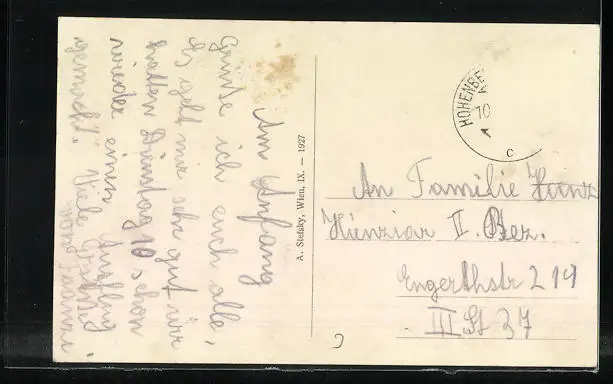 Am Anfang
Grüße ich euch alle,
Es geht mir sehr gut wir
hatten Dienstag 10 schon
wieder einen Ausflug
gemacht. Viele Grüße
von
A. Stefsky, Wien, IX. — 1927
HOHENBE
10
c
An Familie
II. Bez.
Engerthstr 219
III St 37